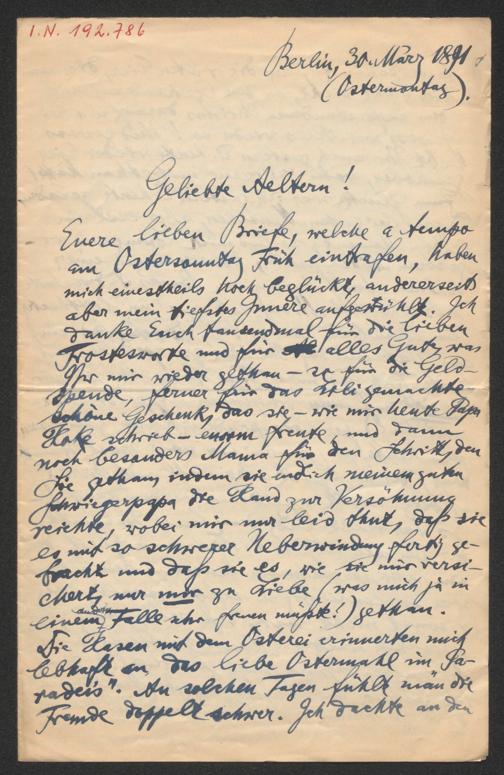 I.N. 192.786
Berlin, 30. März 1891
(Ostermontag).
Geliebte Aeltern!
Euere lieben Briefe, welche a tempo
am Ostersonntag Früh eintrafen, haben
mich einestheils hoch beglückt, andererseits
aber mein tiefstes Innere aufgewühlt. Ich
danke Euch tausendmal für die lieben
Trostesworte und für alles Gute, was
Ihr mir wieder gethan – für die Geld-
spende, ferner für das gemachte
schöne Geschenk, das sie – wie mir heute Papa
schrieb – enorm freute, und dann
noch besonders Mama für den Schritt, den
Sie gethan, indem sie endlich meinem guten
Schwiegerpapa die Hand zur Versöhnung
reichte, wobei mir nur leid thut, daß sie
es mit so schwerer Ueberwindung fertig ge-
bracht und daß sie es, wie sie mir versi-
chert, nur mir zu Liebe (was mich ja in
einem anderen Falle sehr freuen müßte!) gethan.
Die Hasen mit dem Osterei erinnerten mich
lebhaft an das liebe Ostermahl im „Pa-
radeis". An solchen Tagen fühlt man die
Fremde doppelt schwer. Ich dachte an den